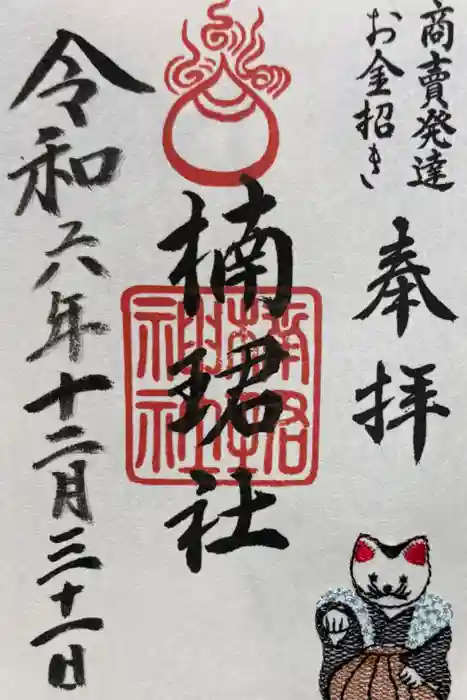 商賣発達
お金招き
奉拝
楠珺社
楠珺社神社
令和六年十二月三十一日